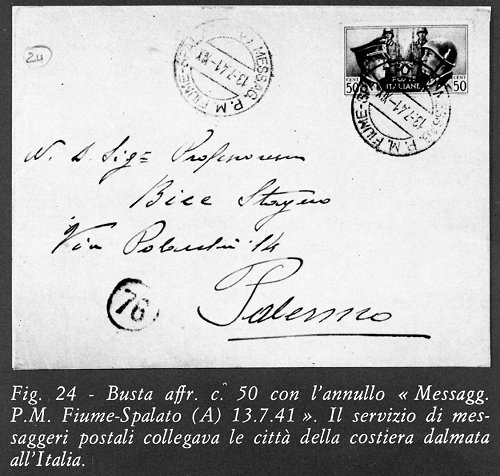 24
MESSAG. P.M. FIUME-SPAL
13-7.41-XIX
CENT 50
POSTE ITALIANE
CENT 50
MESSAG. P.M. FIUME-S
13-7.41-XIX
N. D. Sig.ra Professoressa
Bice Stagno
Via 14
Palermo
76
Fig. 24 - Busta affr. c. 50 con l'annullo « Messagg.
P.M. Fiume-Spalato (A) 13.7.41 ». Il servizio di mes-
saggeri postali collegava le città della costiera dalmata
all'Italia.